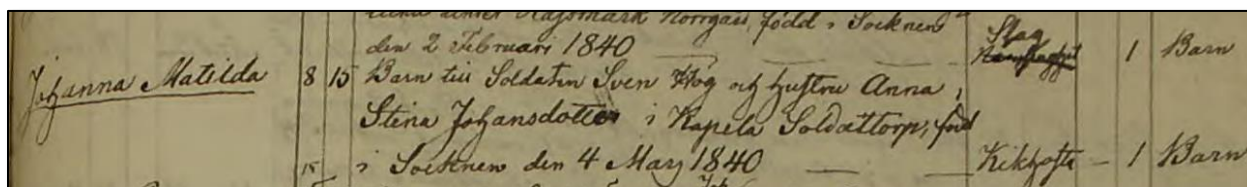 Rågsmark Norrgård, född i Socknen
den 2 Februari 1840 Slag 1 Barn
Johanna Matilda 8 15 Barn till Soldaten Sven Hög och hustru Anna
Stina Johansdotter i Kapela Soldattorp, född
15 i Socknen den 4 Mars 1840 Kikhosta – 1 Barn